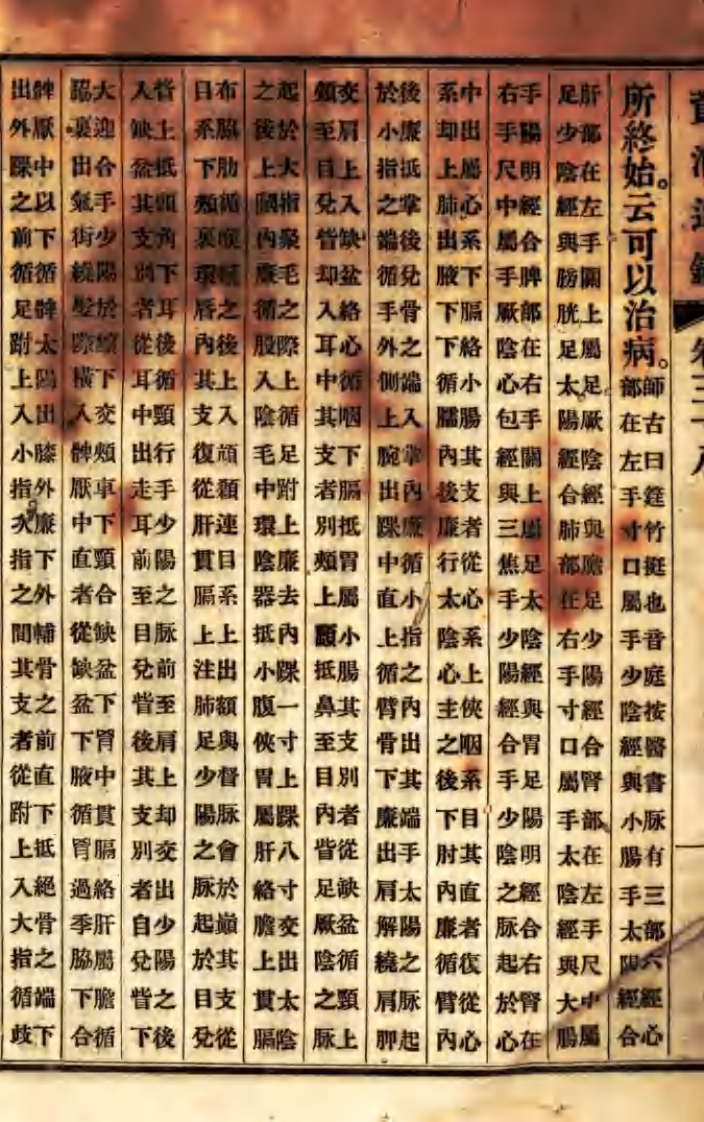 卷三十八
所終始。云可以治病。
師古曰筳竹挺也音庭按醫書脉有三部六經心
部在左手寸口屬手少陰經與小腸手太陽經合
肝部在左手關上屬足厥陰經與膽足少陽經合腎部在左手尺中屬
足少陰經與膀胱足太陽經合肺部在右手寸口屬手太陰經與大腸
手陽明經合脾部在右手關上屬足太陰經與胃足陽明經合右腎在
右手尺中屬手厥陰心包經與三焦手少陽經合手少陰之脉起於心
中出屬心系下膈絡小腸其支者從心系上俠咽系目其直者復從心
系却上肺出腋下下循臑內後廉行太陰心主之後下肘內廉循臂內
後廉抵掌後兌骨之端入掌內廉循小指之內出其端手太陽之脉起
於小指之端循手外側上腕出踝中直上循臂骨下廉出肩解繞肩胛
交肩上入缺盆絡心循咽下膈抵胃屬小腸其支別者從缺盆循頸上
頰至目兌眥却入耳中其支者別頰上䪼抵鼻至目內眥足厥陰之脉
起於大指聚毛之際上循足跗上廉去內踝一寸上踝八寸交出太陰
之後上膕內廉循股入陰毛中環陰器抵小腹俠胃屬肝絡膽上貫膈
布脇肋循喉嚨之後上入頏顙連目系上出額與督脉會於巔其支從
目系下頰裏環脣內其支復從肝貫膈上注肺足少陽之脉起於目兌
眥上抵頭角下耳後循頸行手少陽之脉前至肩上却交出少陽之後
入缺盆其支別者從耳中出走耳前至目兌眥後其支別者自兌眥下
大迎合手少陽於䪼下交頰車下頸合缺盆下胷中貫膈絡肝屬膽循
脇裏出氣街繞髮際橫入髀厭中直者從缺盆下腋循胷過季脇下合
髀厭中以下循髀太陽出膝外廉下外輔骨之前直下抵絕骨之端下
出外踝之前循足跗上入小指次指之間其支者從跗上入大指循歧